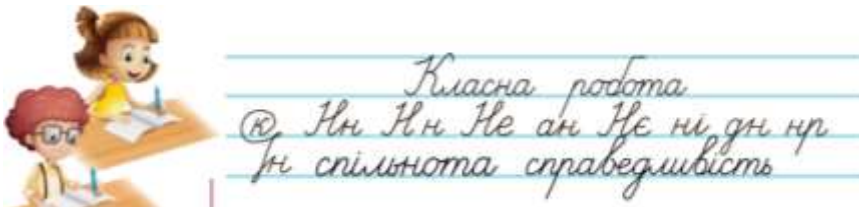 Класна робота
к Нн Нн Не ан Нє ні дн нр
Ін спільнота справедливість